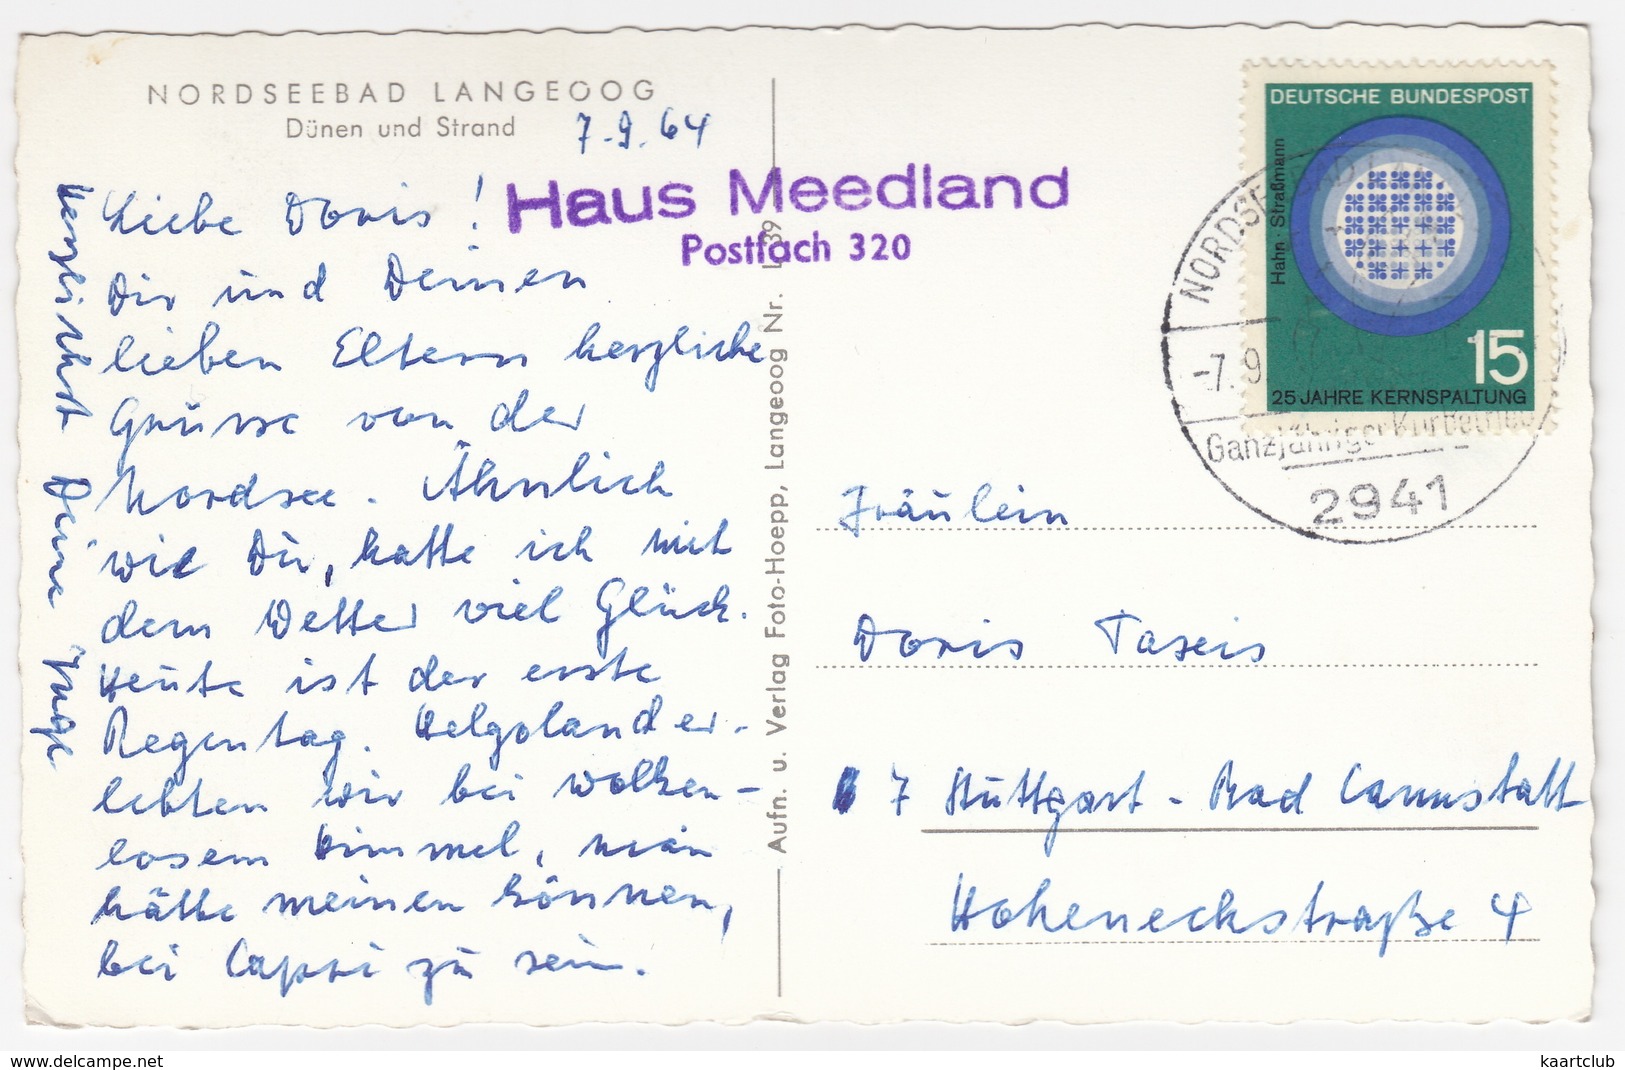 NORDSEEBAD LANGEOOG
Dünen und Strand
7.9.64
Haus Meedland
Postfach 320
Liebe Doris!
Dir und Deinen
lieben Eltern herzliche
Grüsse von der
Nordsee. Ähnlich
wie Du, hatte ich mit
dem Wetter viel Glück.
Heute ist der erste
Regentag. Helgoland er-
lebten wir bei wolken-
losem Himmel, man
hätte meinen können,
bei Capri zu sein.
Herzlichst Deine Inge
Aufn. u. Verlag Foto-Hoepp, Langeoog Nr. L 39
DEUTSCHE BUNDESPOST
Hahn · Straßmann
15
25 JAHRE KERNSPALTUNG
NORDSEEBAD
-7.9
Ganzjähriger Kurbetrieb
2941
Fräulein
Doris Taseis
7 Stuttgart - Bad Cannstatt
Hoheneckstraße 4
www.delcampe.net
kaartclub